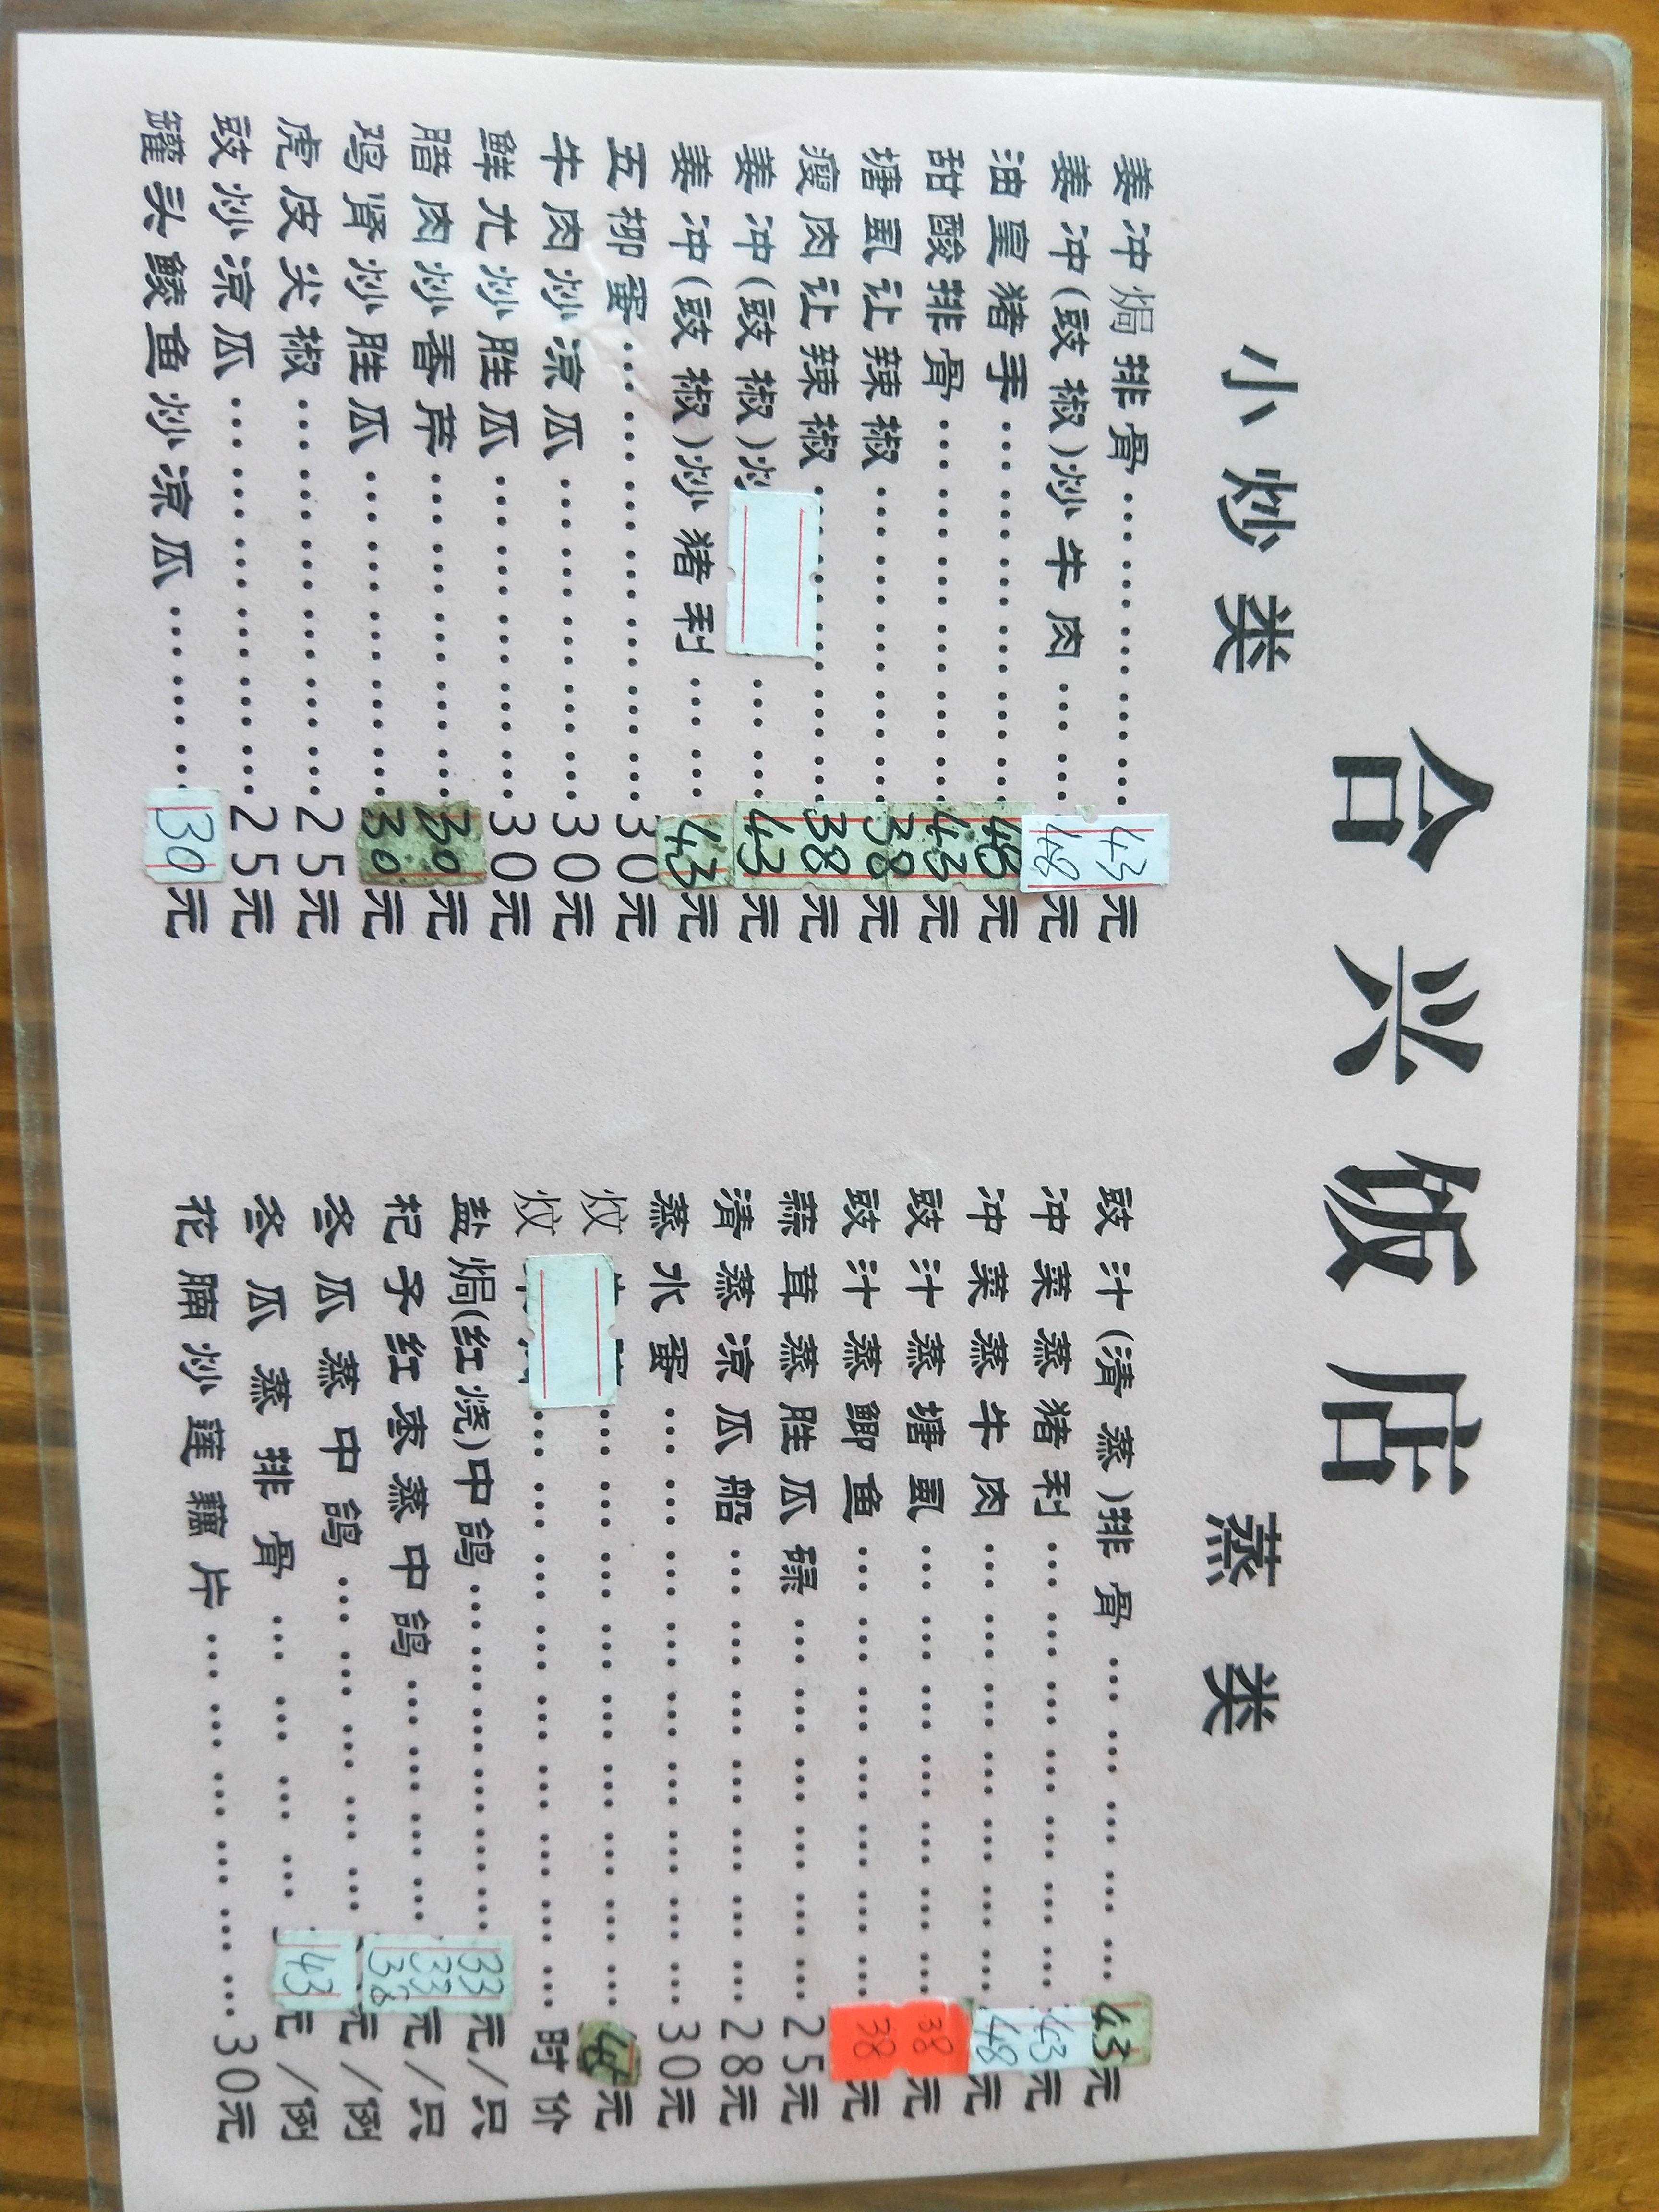 合兴饭店
小炒类
姜冲焗排骨………………43元
姜冲(豉椒)炒牛肉……48元
油皇猪手………………48元
甜酸排骨………………43元
塘虱让辣椒………………38元
瘦肉让辣椒………………38元
姜冲(豉椒)炒……43元
姜冲(豉椒)炒猪利……43元
五柳蛋………………30元
牛肉炒凉瓜………………30元
鲜尤炒胜瓜………………30元
腊肉炒香芹………………30元
鸡肾炒胜瓜………………30元
虎皮尖椒………………25元
豉炒凉瓜………………25元
罐头鲮鱼炒凉瓜………30元
蒸类
豉汁(清蒸)排骨……………43元
冲菜蒸猪利………………43元
冲菜蒸牛肉………………48元
豉汁蒸塘虱………………38元
豉汁蒸鲫鱼………………38元
蒜茸蒸胜瓜碌………………25元
清蒸凉瓜船………………28元
蒸水蛋………………30元
炆………………元
炆………………时价
盐焗(红烧)中鸽……………33元/只
杞子红枣蒸中鸽…………33元/只
冬瓜蒸中鸽……………38元/例
冬瓜蒸排骨……………43元/例
花腩炒莲藕片………………30元